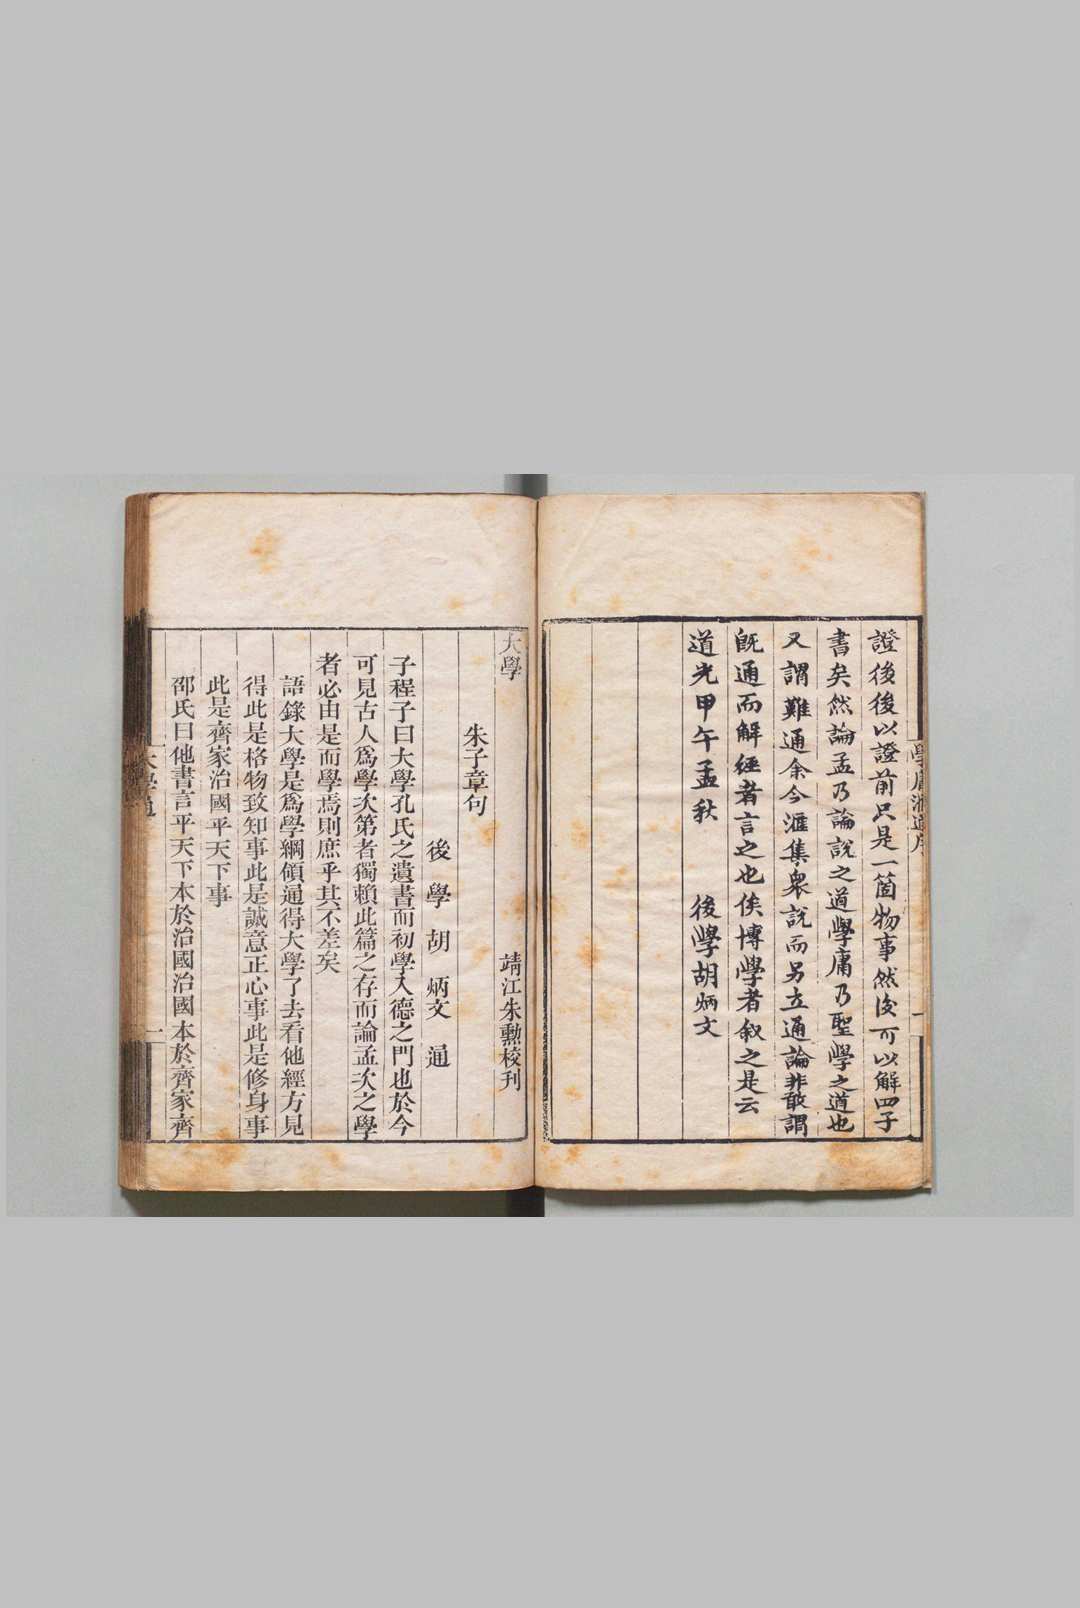 證後後以證前只是一箇物事然後可以解四子
書矣然論孟乃論說之道學庸乃聖學之道也
又謂難通余今滙集衆說而另立通論非敢謂
旣通而解經者言之也俟博學者叙之是云
道光甲午孟秋 後學胡炳文
大學 靖江朱勲校刊
朱子章句
後學胡炳文通
子程子曰大學孔氏之遺書而初學入德之門也於今
可見古人爲學次第者獨賴此篇之存而論孟次之學
者必由是而學焉則庶乎其不差矣
語錄大學是爲學綱領通得大學了去看他經方見
得此是格物致知事此是誠意正心事此是修身事
此是齊家治國平天下事
邵氏曰他書言平天下本於治國治國本於齊家齊